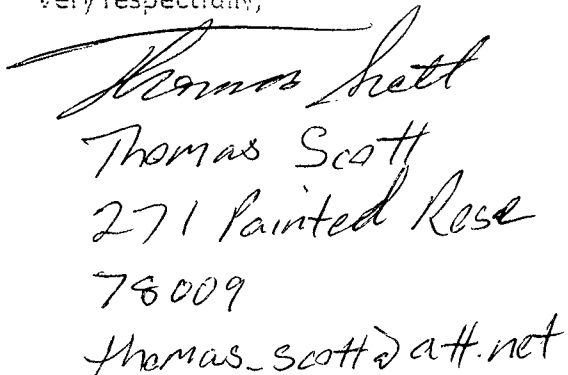 Very respectfully,
Thomas Scott
Thomas Scott
271 Painted Rose
78009
thomas_scott@att.net